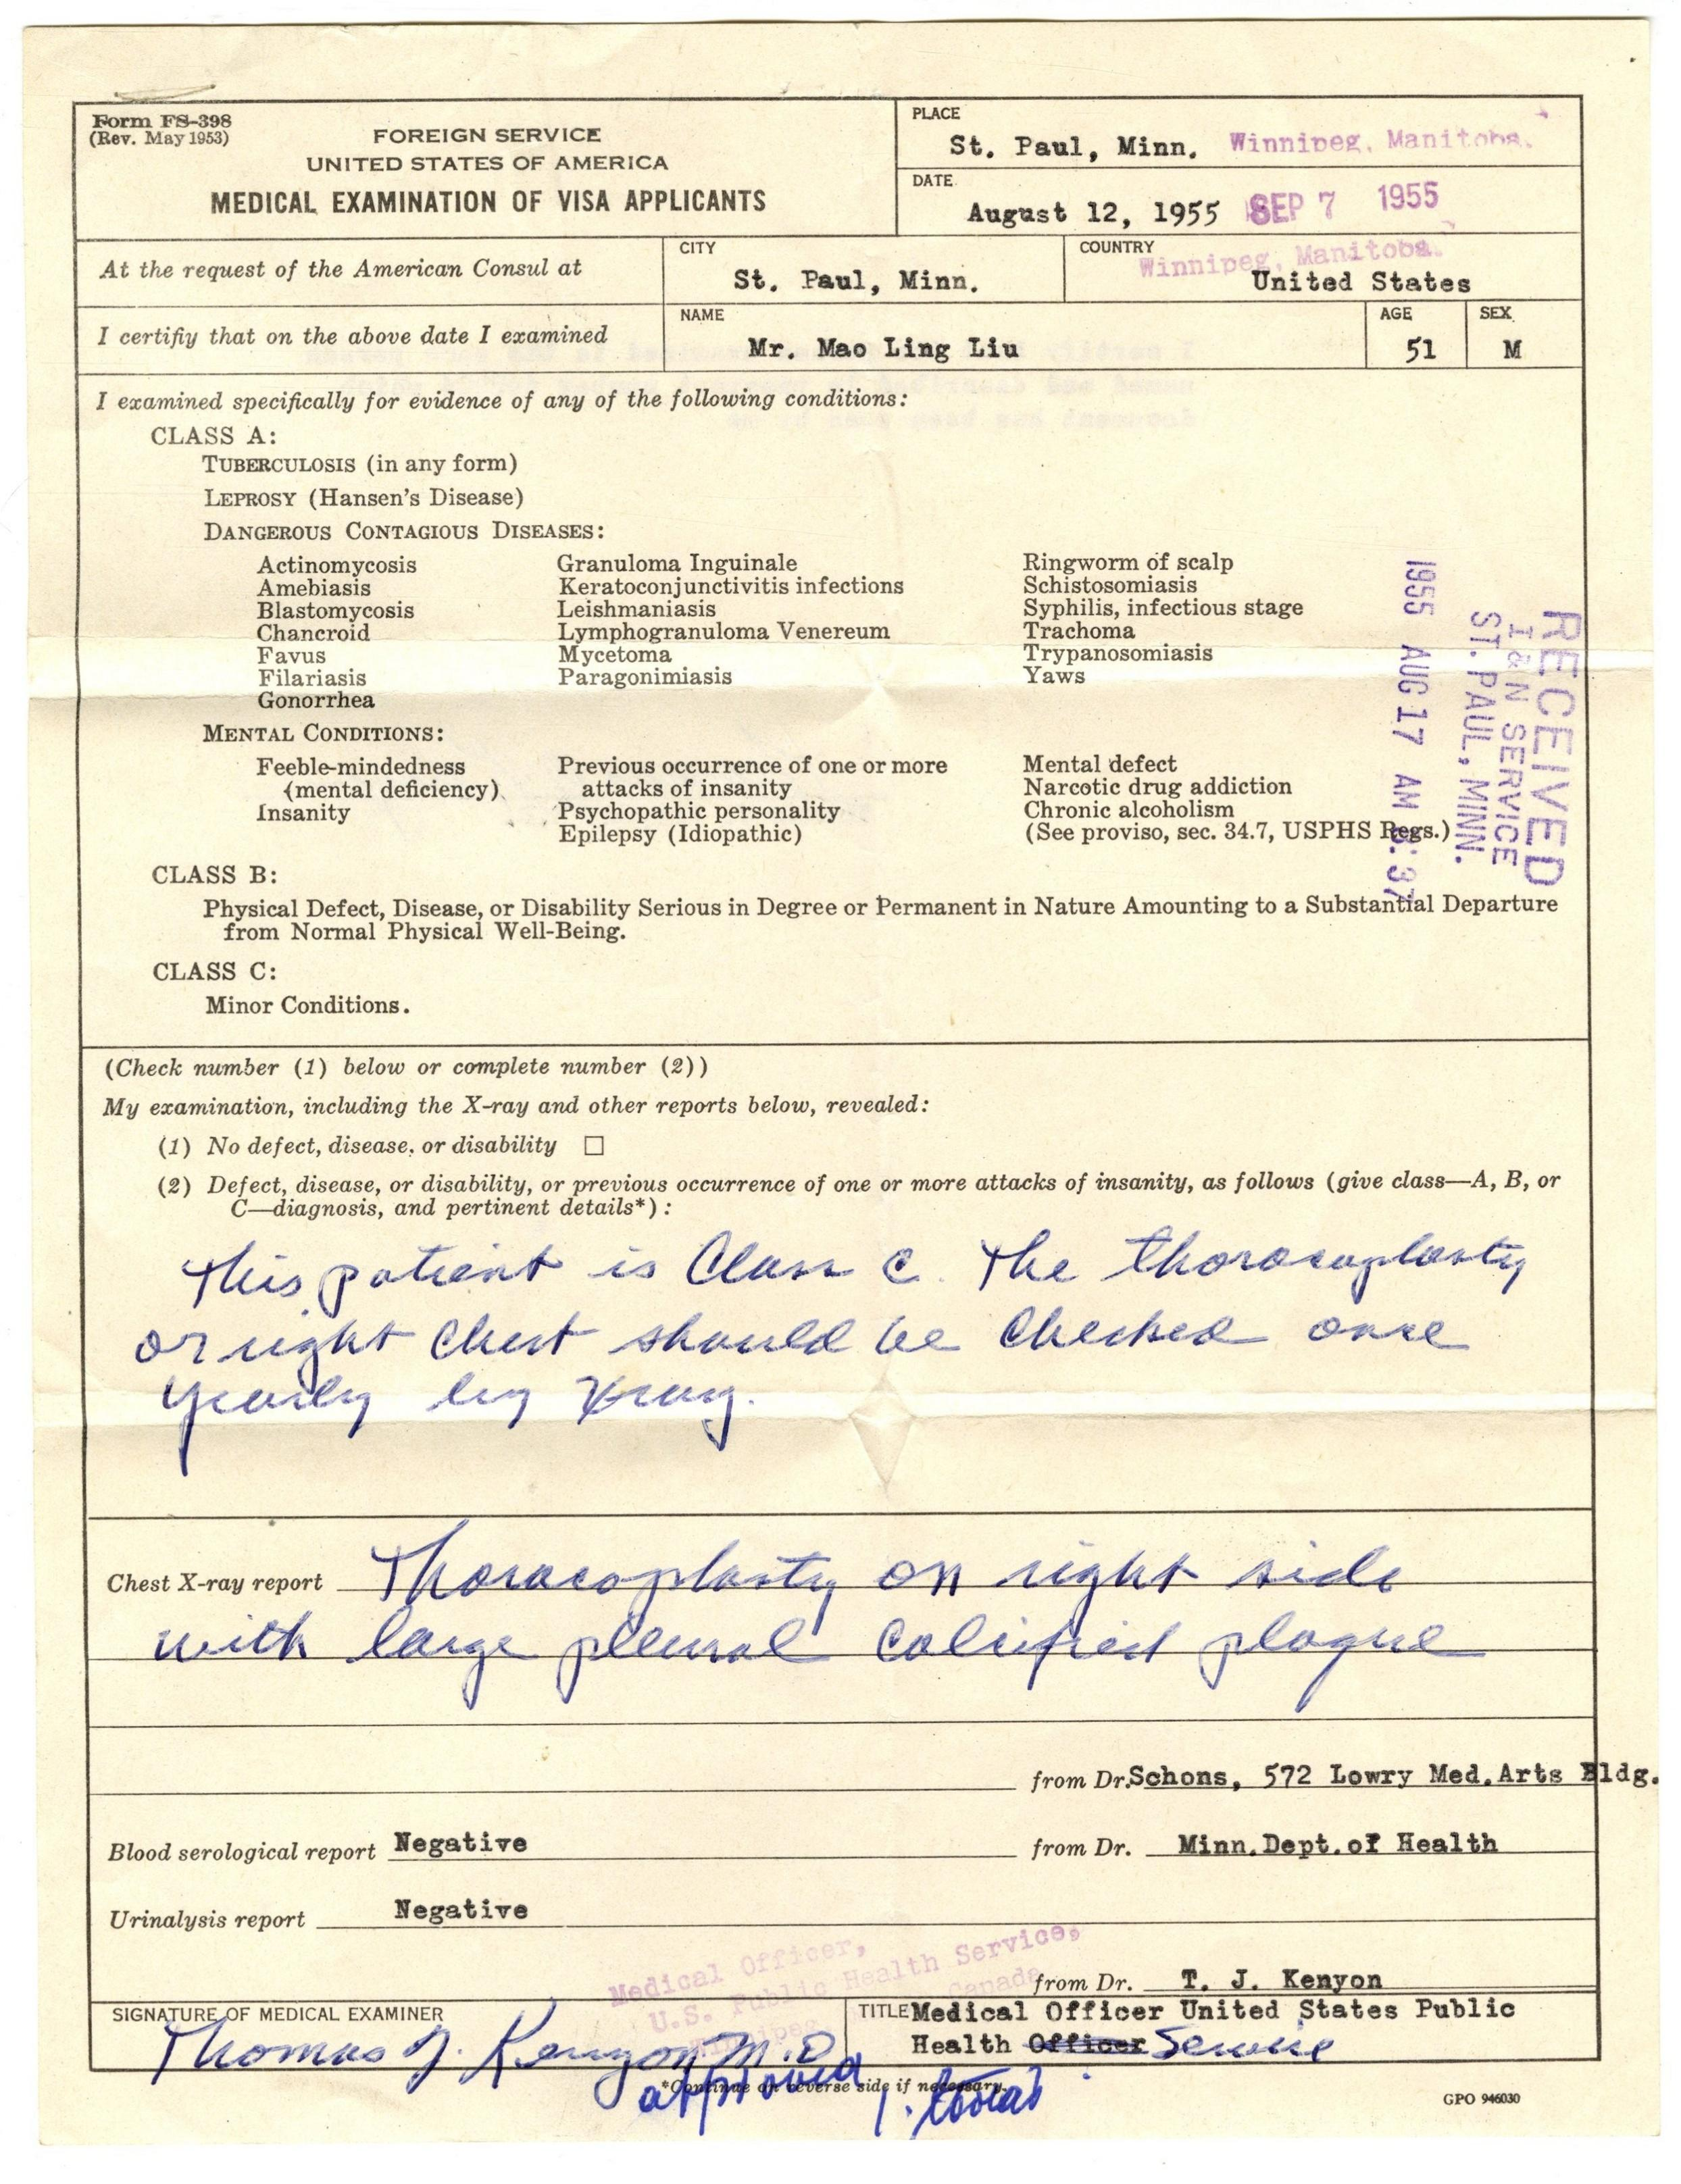 Form FS-398
(Rev. May 1953)
FOREIGN SERVICE
UNITED STATES OF AMERICA
MEDICAL EXAMINATION OF VISA APPLICANTS
PLACE
St. Paul, Minn. Winnipeg, Manitoba.
DATE
August 12, 1955 SEP 7 1955
At the request of the American Consul at
CITY
St. Paul, Minn.
COUNTRY
Winnipeg, Manitoba.
United States
I certifiy that on the above date I examined
NAME
Mr. Mao Ling Liu
AGE
51
SEX
M
I examined specifically for evidence of any of the following conditions:
CLASS A:
TUBERCULOSIS (in any form)
LEPROSY (Hansen's Disease)
DANGEROUS CONTAGIOUS DISEASES:
Actinomycosis
Amebiasis
Blastomycosis
Chancroid
Favus
Filariasis
Gonorrhea
Granuloma Inguinale
Keratoconjunctivitis infections
Leishmaniasis
Lymphogranuloma Venereum
Mycetoma
Paragonimiasis
Ringworm of scalp
Schistosomiasis
Syphilis, infectious stage
Trachoma
Trypanosomiasis
Yaws
RECEIVED
I & N SERVICE
ST. PAUL, MINN.
1955 AUG 17 AM 8:37
MENTAL CONDITIONS:
Feeble-mindedness
(mental deficiency)
Insanity
Previous occurrence of one or more
attacks of insanity
Psychopathic personality
Epilepsy (Idiopathic)
Mental defect
Narcotic drug addiction
Chronic alcoholism
(See proviso, sec. 34.7, USPHS Regs.)
CLASS B:
Physical Defect, Disease, or Disability Serious in Degree or Permanent in Nature Amounting to a Substantial Departure
from Normal Physical Well-Being.
CLASS C:
Minor Conditions.
(Check number (1) below or complete number (2))
My examination, including the X-ray and other reports below, revealed:
(1) No defect, disease, or disability □
(2) Defect, disease, or disability, or previous occurrence of one or more attacks of insanity, as follows (give class—A, B, or
C—diagnosis, and pertinent details*):
This patient is Class C. The thoracoplasty
or right chest should be checked once
yearly by Xray.
Chest X-ray report Thoracoplasty on right side
with large pleural calcified plaque
from Dr. Schons, 572 Lowry Med.Arts Bldg.
Blood serological report Negative
from Dr. Minn.Dept.of Health
Urinalysis report Negative
Medical Officer,
U.S. Public Health Service,
Winnipeg, Canada
from Dr. T. J. Kenyon
SIGNATURE OF MEDICAL EXAMINER
Thomas J. Kenyon M.D
TITLE Medical Officer United States Public
Health Officer Service
*Continue on reverse side if necessary.
approved
GPO 946030